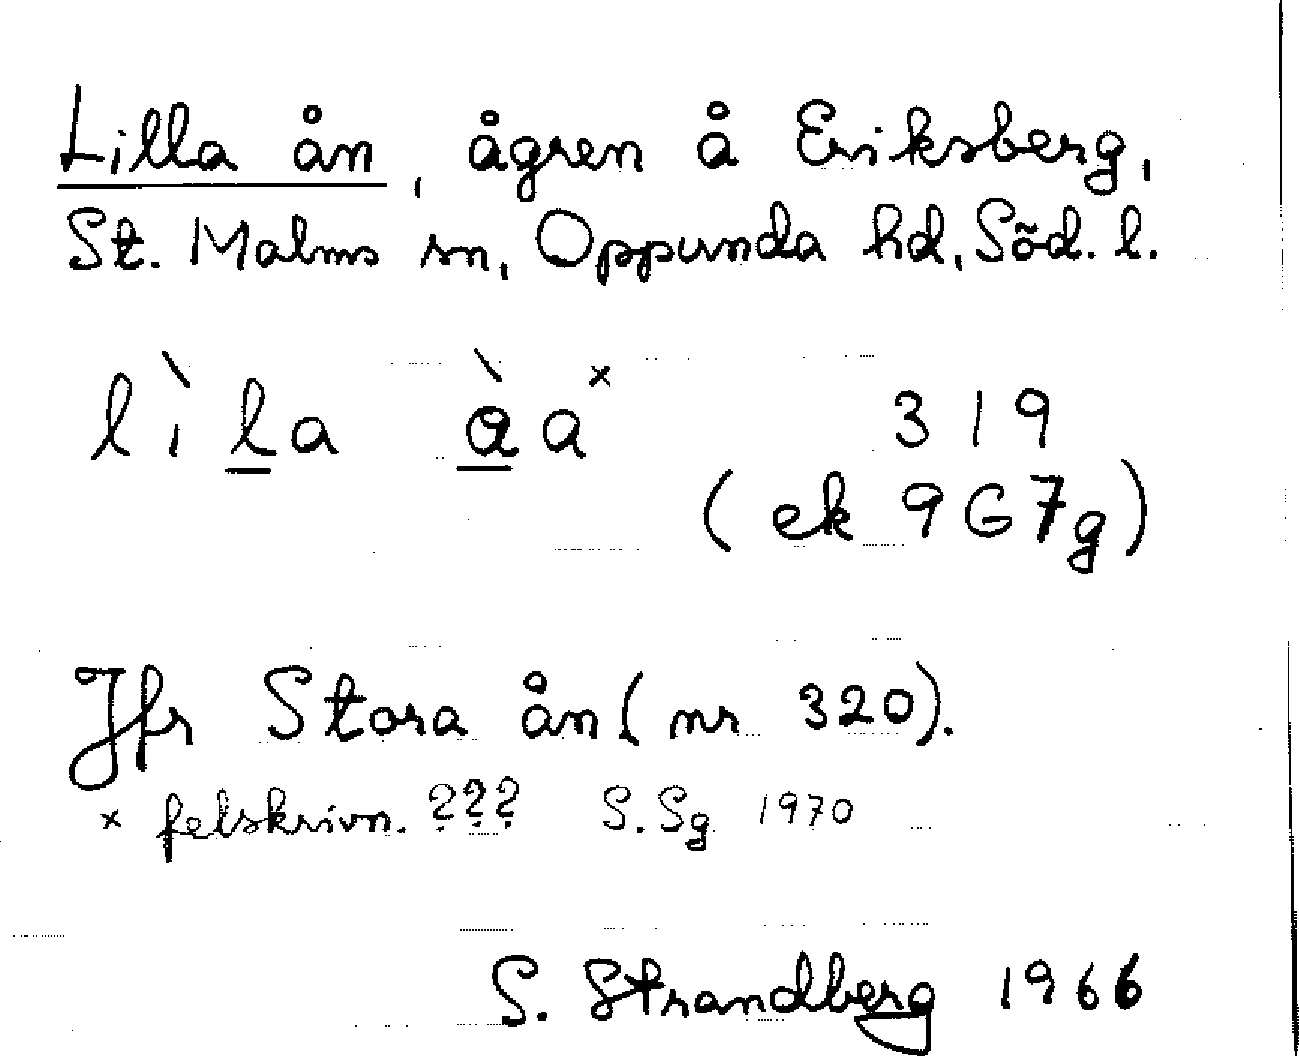 Lilla ån, ågren å Eriksberg,
St. Malms sn, Oppunda hd, Söd. l.
lìla àa× 319
(ek 9G7g)
Jfr Stora ån (nr 320).
× felskrivn. ??? S. Sg 1970
S. Strandberg 1966